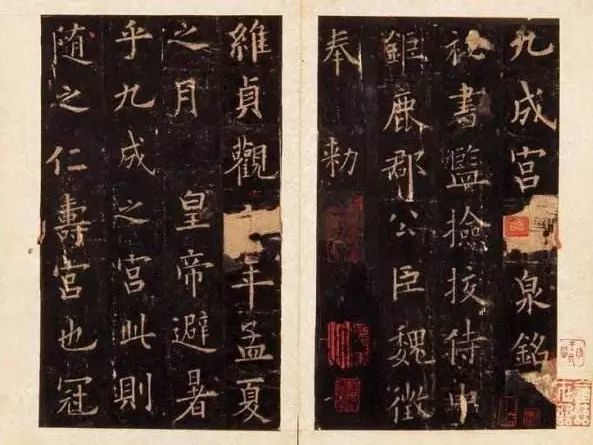 九成宫 泉銘
祕書監撿挍侍中
鉅鹿郡公臣魏徵
奉 勑
維貞觀 年孟夏
之月 皇帝避暑
乎九成之宫此則
随之仁壽宫也冠